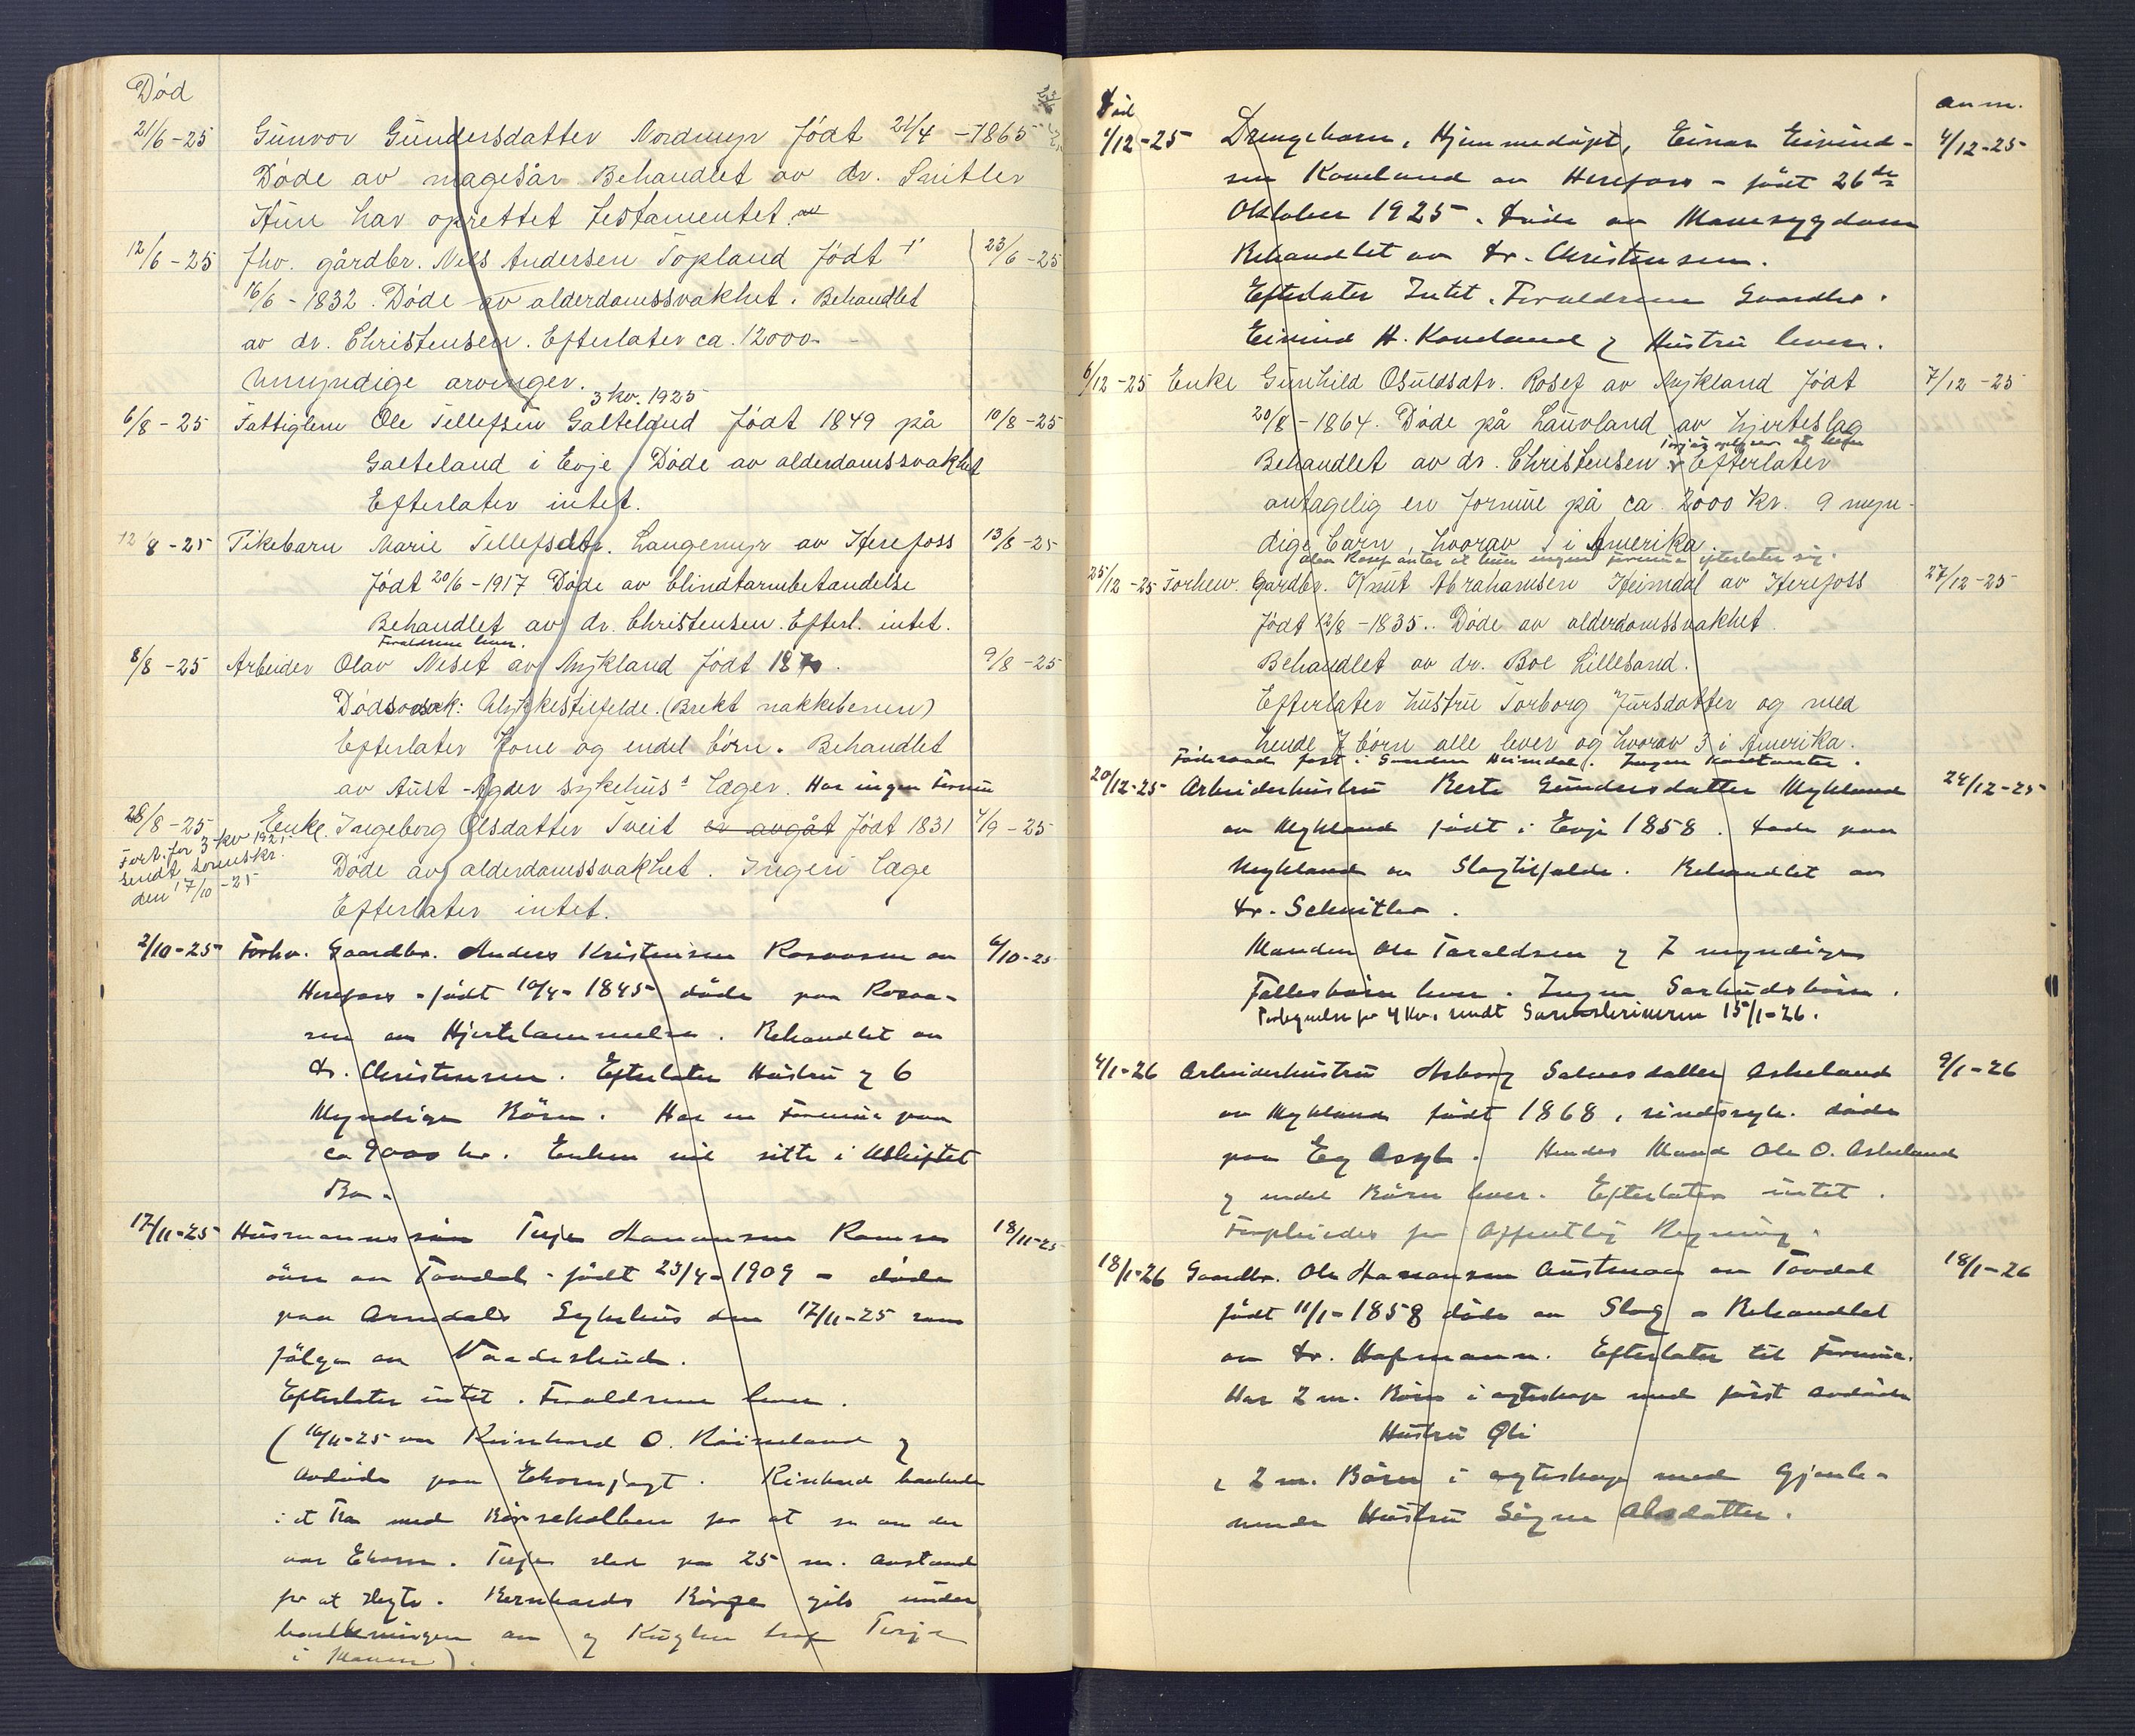 Død
21/6-25 Gunvor Gundersdatter Nordmyr født 21/4 -1865
Døde av magesår Behandlet av dr. Snitler
Hun har oprettet testamentet
12/6-25 fhv. gårdbr. Nils Andersen Topland født 23/6-25
16/6-1832. Døde av alderdomssvakhet. Behandlet
av dr. Christensen. Efterlater ca. 12000-
Umyndige arvinger.
3 kv. 1925
6/8-25 Fattiglem Ole Tellefsen Galteland født 1849 på 10/8-25
Galteland i Evje Døde av alderdomssvakhet
Efterlater intet.
12/8-25 Pikebarn Marie Tellefsdtr. Langemyr av Herefoss 13/8-25
født 20/6-1917 Døde av blindtarmbetandelse
Behandlet av dr. Christensen. Efterl. intet.
Foraldrene lever.
8/8-25 Arbeider Olav Neset av Mykland født 9/8-25
Dødsorsak: Ulykkestilfelde. (Brekt nakkebenen)
Efterlater kone og endel børn. Behandlet
av Aust-Agder sykehus's læger. Har ingen Formue
28/8-25 Enke. Ingeborg Olsdatter Tveit er avgåt født 1831 4/9-25
Fort. for 3 kv 1925
sendt sorenskr.
den 17/10-25
Døde av alderdomssvakhet. Ingen læge
Efterlater intet.
2/10-25 Forhv. Gaardbr. Anders Kristensen Rosaasen av 6/10-25
Herefoss - født 10/4-1845 døde paa Rosaa-
sen av Hjertelammelse. Behandlet av
Dr. Christensen. Efterlater Hustru og 6
Myndige Børn. Har en Formue paa
ca 9000 kr. Enken vil sitte i Uskiftet
Bo.
17/11-25 Husmannssøn Terje Aanonsen Ramse 18/11-25
øire av Tovdal - født 23/4-1909 - døde
paa Arendals Sykehus den 17/11-25 som
følge av Vaadeskud.
Efterlater intet. Foraldrene lever.
(16/11-25 var Reinhard O. Røineland og
Avdøde paa Ekornjagt. Reinhard bankede
i et Træ med Børsekolben for at se om der
var Ekorn. Terje stod paa 25 m. avstand
for at sigte. Bernhards Børse gik under
bankningen av og Kuglen traf Terje
i Maven).
Død anm.
1/12-25 Drengebarn, Hjemmedøpt, Einar Eivind- 4/12-25
sen Koveland av Herefoss - født 26de
Oktober 1925. Døde av Mavesygdom
Behandlet av Dr. Christensen.
Efterlater Intet. Foraldrene Gaardbr.
Eivind H. Koveland og Hustru lever.
6/12-25 Enke Gunhild Osuldsdtr. Rosef av Mykland født 7/12-25
20/8-1864. Døde på Lauvland av hjerteslag
Behandlet av dr. Christensen. Efterlater
antagelig en formue på ca 2000 kr. 9 myn-
dige barn, hvorav i Amerika.
Olav Rosef antar at hun ingen formue efterlater sig.
25/12-25 Forhenv. Gardbr. Knut Abrahamsen Heimdal av Herefoss 27/12-25
født 12/8-1835. Døde av alderdomssvakhet.
Behandlet av dr. Boe Lillesand.
Efterlater hustru Torborg Jursdatter og med
hende 7 børn alle lever og hvorav 3 i Amerika.
Føderaad fast i Gaarden Heimdal. Ingen Kontanter.
20/12-25 Arbeiderhustru Berte Gundersdatter Mykland 24/12-25
av Mykland født i Evje 1858. Døde paa
Mykland av Slagtilfælde. Behandlet av
Dr. Schnitler.
Manden Ole Taraldsen og 7 myndige
Fællesbørn lever. Ingen Særkudsbørn.
Fortegnelse for 4 Kv. sendt Sorenskriveren 15/1-26.
4/1-26 Arbeiderhustru Asborg Salvesdatter Askeland 9/1-26
av Mykland født 1868, sindssyk. døde
paa Eg Asyl. Hendes Mand Ole O. Askeland
og endel Børn lever. Efterlater intet.
Forpleiedes for Offentlig Regning.
18/1-26 Gaardbr. Ole Aanonsen Austenaa av Tovdal 18/1-26
født 11/1-1858 døde av Slag - Behandlet
av Dr. Hofmann. Efterlater til Formue.
Har 2 m. Børn i egteskap med først avdøde
Hustru Gli
og 2 m. Børn i egteskap med Gjenle-
vende Hustru Signe Olsdatter.